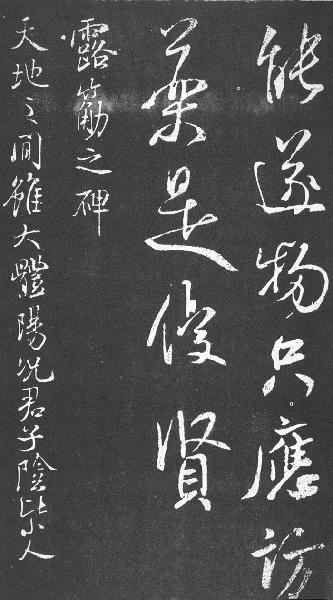 能遂物只應訪
藥是俊賢
露筋之碑
天地之間雖大體陽況君子陰比小人